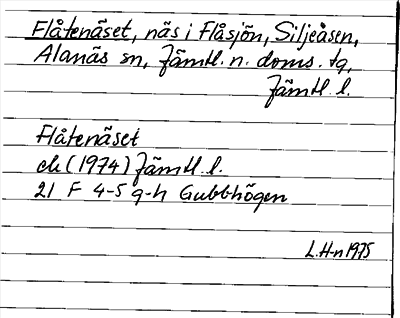 Flåtenäset, näs i Flåsjön, Siljeåsen,
Alanäs sn, Jämtl. n. doms. tg,
Jämtl. l.
Flåtenäset
ek (1974) Jämtl. l.
21 F 4-5 g-h Gubbhögen
L.H-n 1975